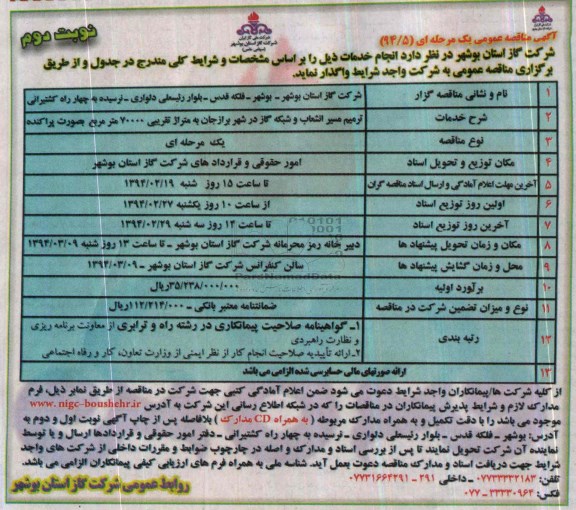 نوبت دوم
شرکت ملی گاز ایران
شرکت گاز استان بوشهر
(سهامی خاص)
آگهی مناقصه عمومی یک مرحله ای (۹۴/۵)
شرکت گاز استان بوشهر در نظر دارد انجام خدمات ذیل را بر اساس مشخصات و شرایط کلی مندرج در جدول و از طریق
برگزاری مناقصه عمومی به شرکت واجد شرایط واگذار نماید.
۱ نام و نشانی مناقصه گزار شرکت گاز استان بوشهر _ بوشهر _ فلکه قدس _ بلوار رئیسعلی دلواری _ نرسیده به چهار راه کشتیرانی
۲ شرح خدمات ترمیم مسیر انشعاب و شبکه گاز در شهر برازجان به متراژ تقریبی ۷۰۰۰۰ متر مربع بصورت پراکنده
۳ نوع مناقصه یک مرحله ای
۴ مکان توزیع و تحویل اسناد امور حقوقی و قرارداد های شرکت گاز استان بوشهر
۵ آخرین مهلت اعلام آمادگی و ارسال اسناد مناقصه گران تا ساعت ۱۵ روز شنبه ۱۳۹۴/۰۲/۱۹
۶ اولین روز توزیع اسناد از ساعت ۱۰ روز یکشنبه ۱۳۹۴/۰۲/۲۷
۷ آخرین روز توزیع اسناد تا ساعت ۱۴ روز سه شنبه ۱۳۹۴/۰۲/۲۹
۸ مکان و زمان تحویل پیشنهاد ها دبیرخانه رمز محرمانه شرکت گاز استان بوشهر _ تا ساعت ۱۴ روز شنبه ۱۳۹۴/۰۳/۰۹
۹ محل و زمان گشایش پیشنهاد ها سالن کنفرانس شرکت گاز استان بوشهر _ ۱۳۹۴/۰۳/۰۹
۱۰ برآورد اولیه ۳۵/۲۳۸/۰۰۰/۰۰۰ریال
۱۱ نوع و میزان تضمین شرکت در مناقصه ضمانتنامه معتبر بانکی _ ۱۱۲/۲۱۴/۰۰۰ریال
۱۲ رتبه بندی ۱_ گواهینامه صلاحیت پیمانکاری در رشته راه و ترابری از معاونت برنامه ریزی
و نظارت راهبردی
۲_ارائه تأییدیه صلاحیت انجام کار از نظر ایمنی از وزارت تعاون، کار و رفاه اجتماعی
۱۳ ارائه صورتهای مالی حسابرسی شده الزامی می باشد
از کلیه شرکت ها/پیمانکاران واجد شرایط دعوت می شود ضمن اعلام آمادگی کتبی جهت شرکت در مناقصه از طریق نمابر ذیل، فرم
مدارک لازم و شرایط پذیرش پیمانکاران در مناقصات را که در شبکه اطلاع رسانی این شرکت به آدرس www.nigc-boushehr.ir
موجود می باشد را با دقت تکمیل و به همراه مدارک مربوطه ( به همراه CD مدارک ) بلافاصله پس از چاپ آگهی نوبت اول و دوم به
آدرس: بوشهر _ فلکه قدس _ بلوار رئیسعلی دلواری _ نرسیده به چهار راه کشتیرانی _ دفتر امور حقوقی و قراردادها ارسال و یا توسط
نماینده آن شرکت تحویل نمایند تا پس از بررسی اسناد و مدارک و اصله در چارچوب ضوابط و مقررات داخلی از شرکت های واجد
شرایط جهت دریافت اسناد و مدارک مناقصه دعوت بعمل آید. شناسه ملی به همراه فرم های ارزیابی کیفی پیمانکاران الزامی می باشد.
تلفن: ۰۷۷۳۳۳۳۲۱۸۳ _ داخلی ۲۹۱ - ۰۷۷۳۱۶۶۴۲۹۱
فکس: ۳۳۳۳۰۹۶۴ - ۰۷۷
روابط عمومی شرکت گاز استان بوشهر